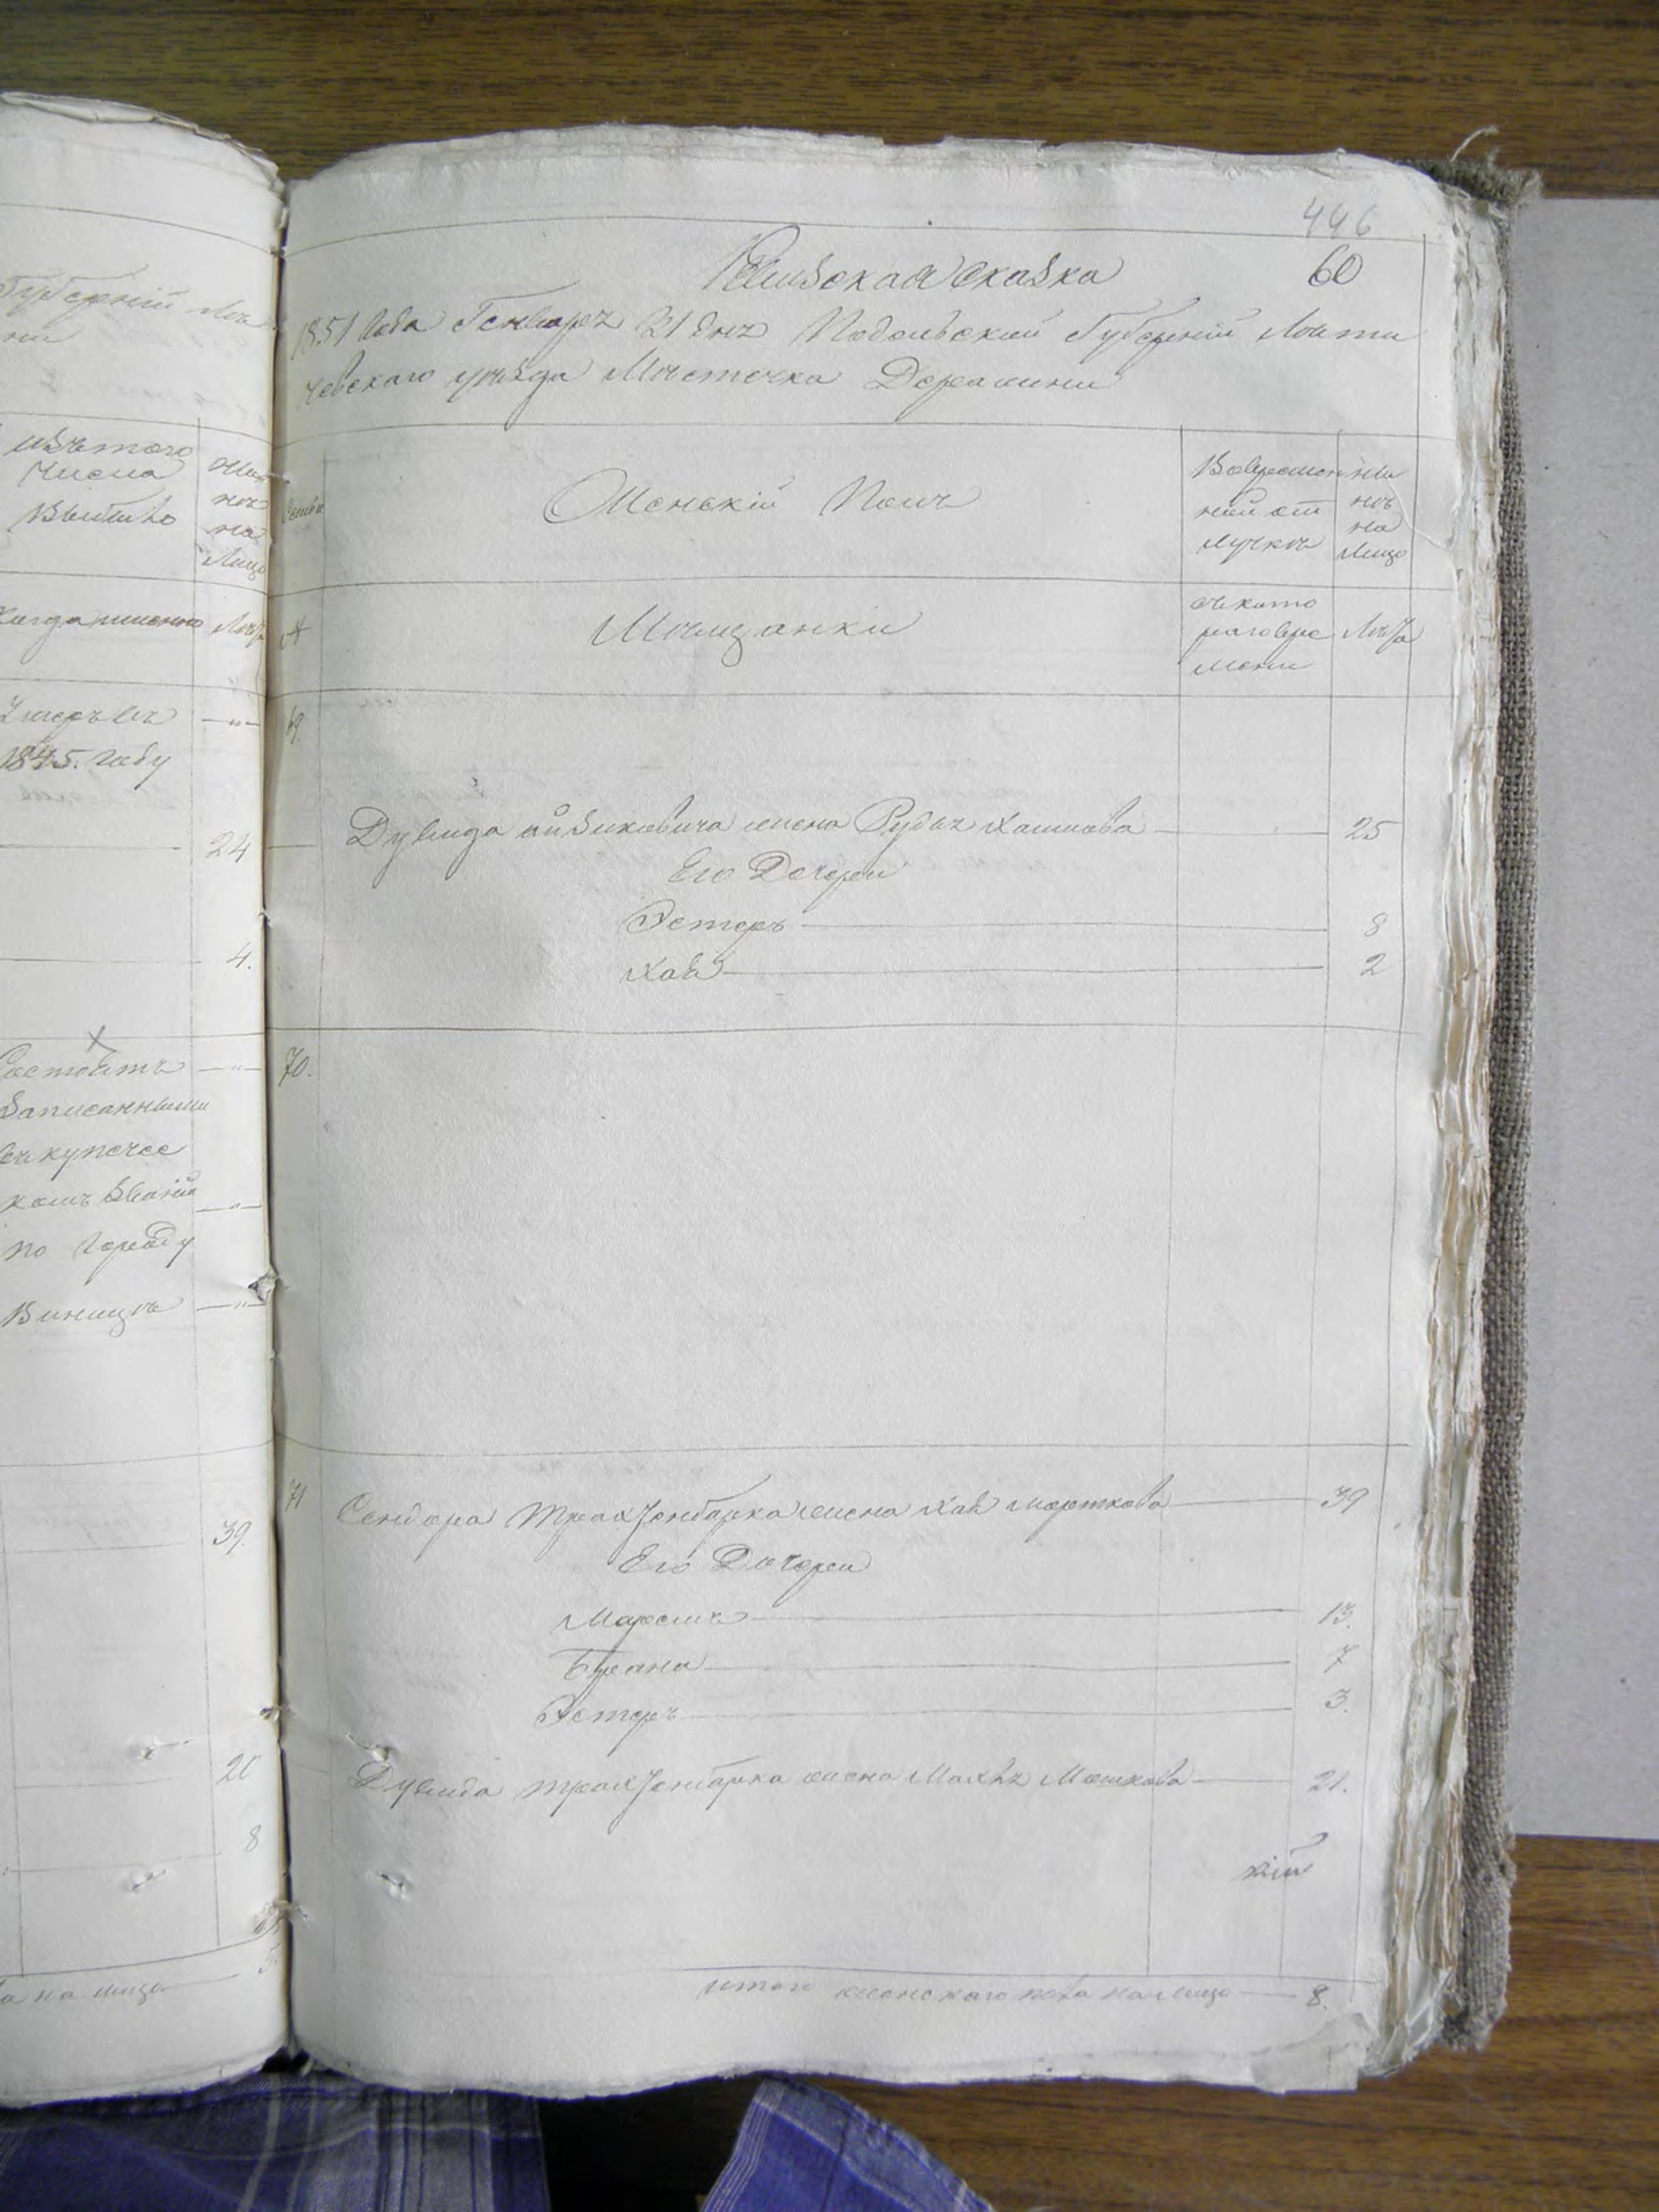 Губерніи Ле
ни
изътого
числа
выбыло
Лицо
Когда именно
Лета
Умеръ въ
1845. году
24
4.
Состоитъ
записаннымъ
въ купечес
комъ званіи
по городу
Виницѣ
39.
20
8
на лицо
446
Ревизская сказка
60
1851 года Генваря 21 дня Подольской Губерніи Лети
чевскаго уѣзда Мѣстечка Деражни
Семьи
Женскій Полъ
Вовремен
ной от
лучкѣ
ны
нѣ
на
Лицо
№
Мѣщанки
съ кото
раго вре
мени
Лѣта
69.
Дувида Айзиковича жена Рудя Хаимова 25
Его Дочери
Эстеръ 8
Хая 2
70.
71
Сендера Трахтенбарка жена Хая Морткова 39
Его Дочери
Маріемъ 13.
Брана 7
Эстеръ 3.
Дувида Трахтенбарка жена Малка Мошкова 21.
кій
итого женскаго пола на лицо 8.